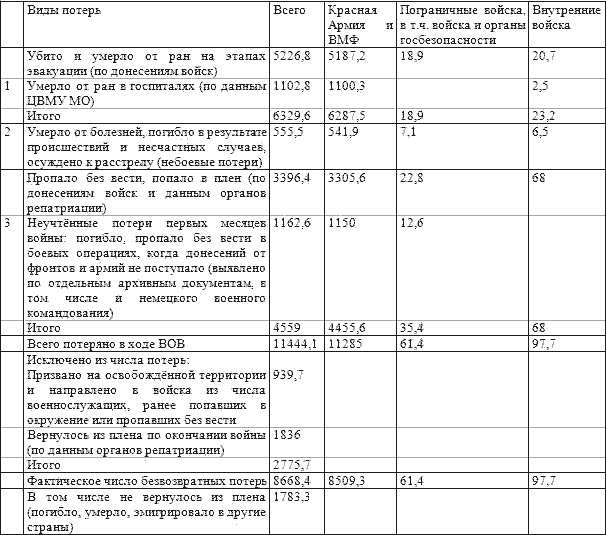 Виды потерь Всего Красная Пограничные войска, Внутренние
Армия и в т.ч. войска и органы войска
ВМФ госбезопасности
Убито и умерло от ран на этапах 5226,8 5187,2 18,9 20,7
эвакуации (по донесениям войск)
1 Умерло от ран в госпиталях (по данным 1102,8 1100,3 2,5
ЦВМУ МО)
Итого 6329,6 6287,5 18,9 23,2
2 Умерло от болезней, погибло в результате 555,5 541,9 7,1 6,5
происшествий и несчастных случаев,
осуждено к расстрелу (небоевые потери)
Пропало без вести, попало в плен (по 3396,4 3305,6 22,8 68
донесениям войск и данным органов
репатриации)
3 Неучтённые потери первых месяцев 1162,6 1150 12,6
войны: погибло, пропало без вести в
боевых операциях, когда донесений от
фронтов и армий не поступало (выявлено
по отдельным архивным документам, в
том числе и немецкого военного
командования)
Итого 4559 4455,6 35,4 68
Всего потеряно в ходе ВОВ 11444,1 11285 61,4 97,7
Исключено из числа потерь:
Призвано на освобождённой территории 939,7
и направлено в войска из числа
военнослужащих, ранее попавших в
окружение или пропавших без вести
Вернулось из плена по окончании войны 1836
(по данным органов репатриации)
Итого 2775,7
Фактическое число безвозвратных потерь 8668,4 8509,3 61,4 97,7
В том числе не вернулось из плена 1783,3
(погибло, умерло, эмигрировало в другие
страны)